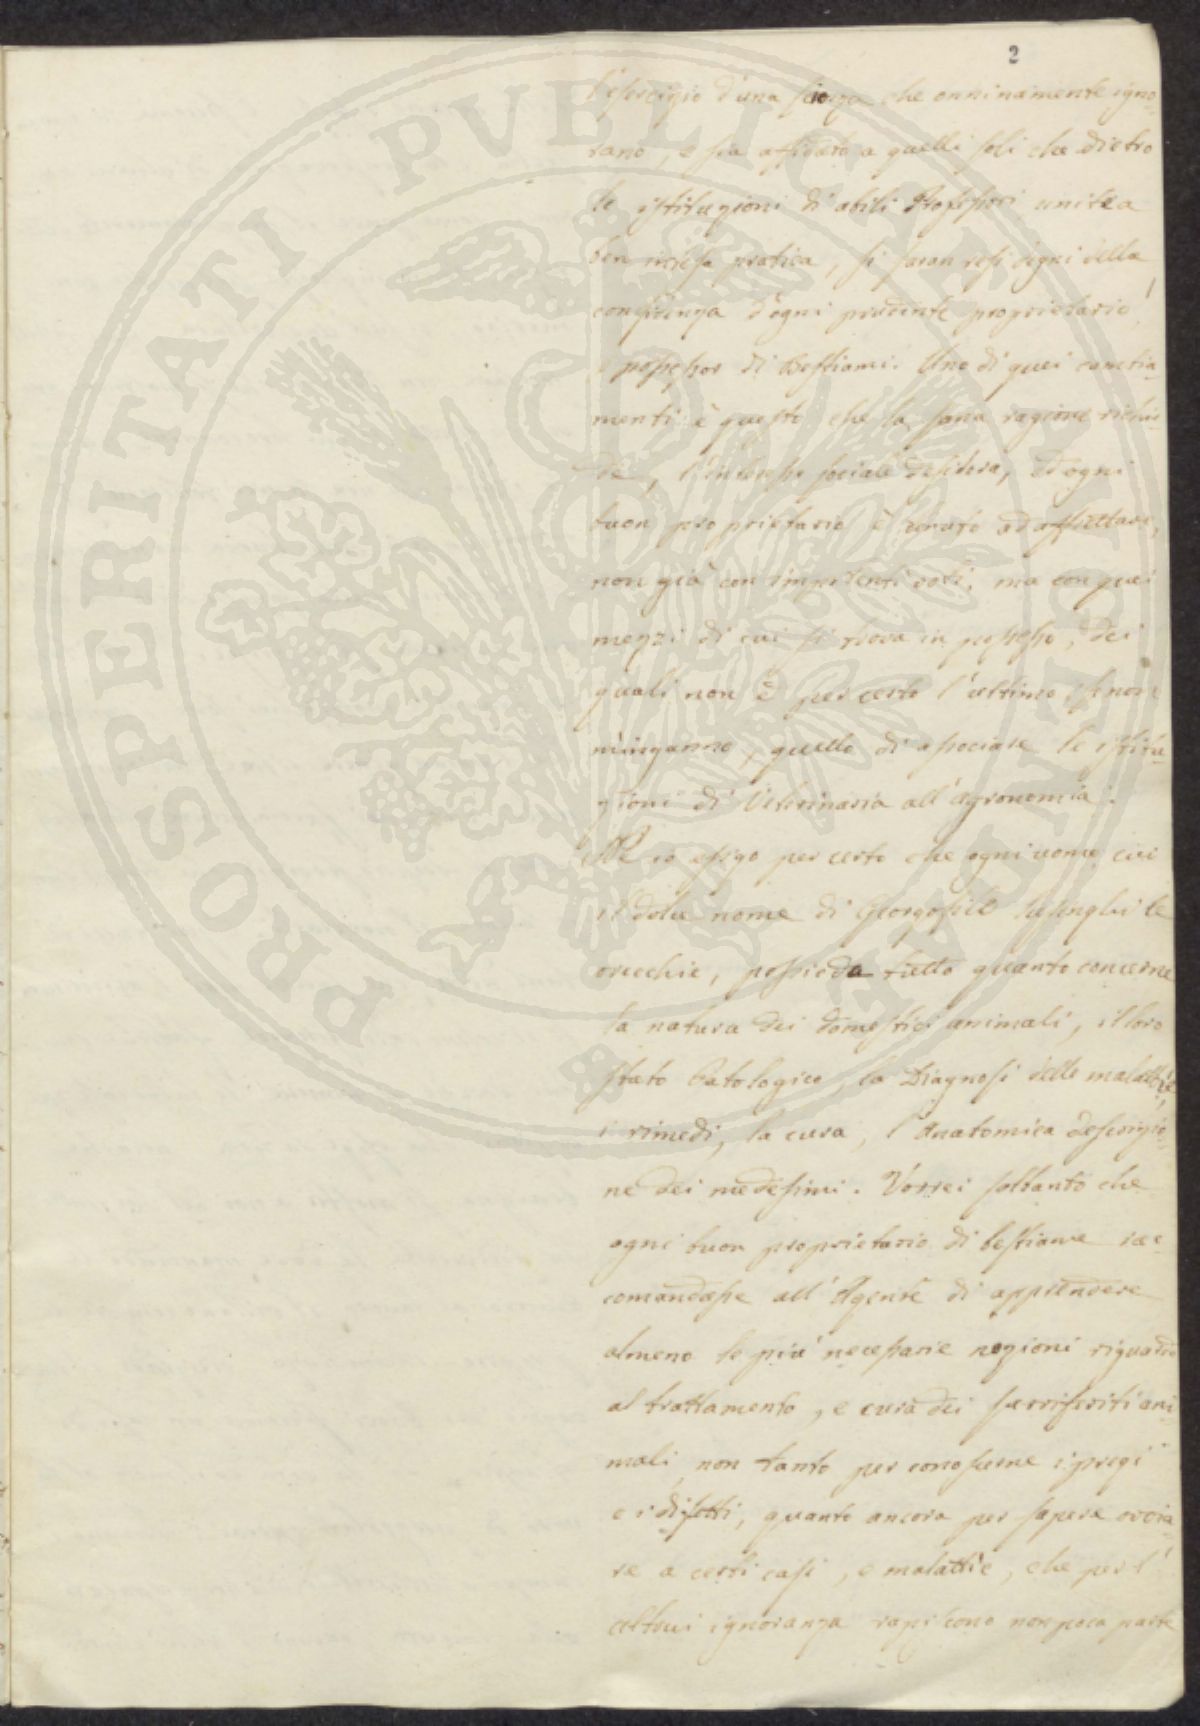 2
l'esercizio d'una scienza che onninamente igno-
rano, e sia affidato a quelli soli che dietro
le istituzioni di abili Professori unite a
ben intesa pratica, si saran resi degni della
confidenza d'ogni prudente proprietario,
possessor di Bestiami. Uno di quei cambia-
menti è questo che la sana ragione richie-
de, l'interesse sociale desidera, ed ogni
buon proprietario è tenuto ad affrettare,
non già con impotenti voti, ma con quei
mezzi di cui si trova in possesso, dei
quali non è per certo l'ultimo, se non
m'inganno, quello di associare le istitu-
zioni di Veterinaria all'agronomia.
Nè io esigo per certo che ogni uomo cui
il dolce nome di Georgofilo lusinghi le
orecchie, possieda tutto quanto concerne
la natura dei domestici animali, il loro
stato Patologico, la Diagnosi delle malattie,
i rimedi, la cura, l'Anatomica descrizio-
ne dei medesimi. Vorrei soltanto che
ogni buon proprietario di bestiame rac-
comandasse all'Agente di apprendere
almeno le più necessarie nozioni riguardo
al trattamento, e cura dei surriferiti ani-
mali non tanto per conoscerne i pregi
e i difetti, quanto ancora per sapere ovvia-
re a certi casi, e malattie, che per l'
altrui ignoranza rapiscono non poca parte
PROSPERITATI PUBLICAE AUGENDAE